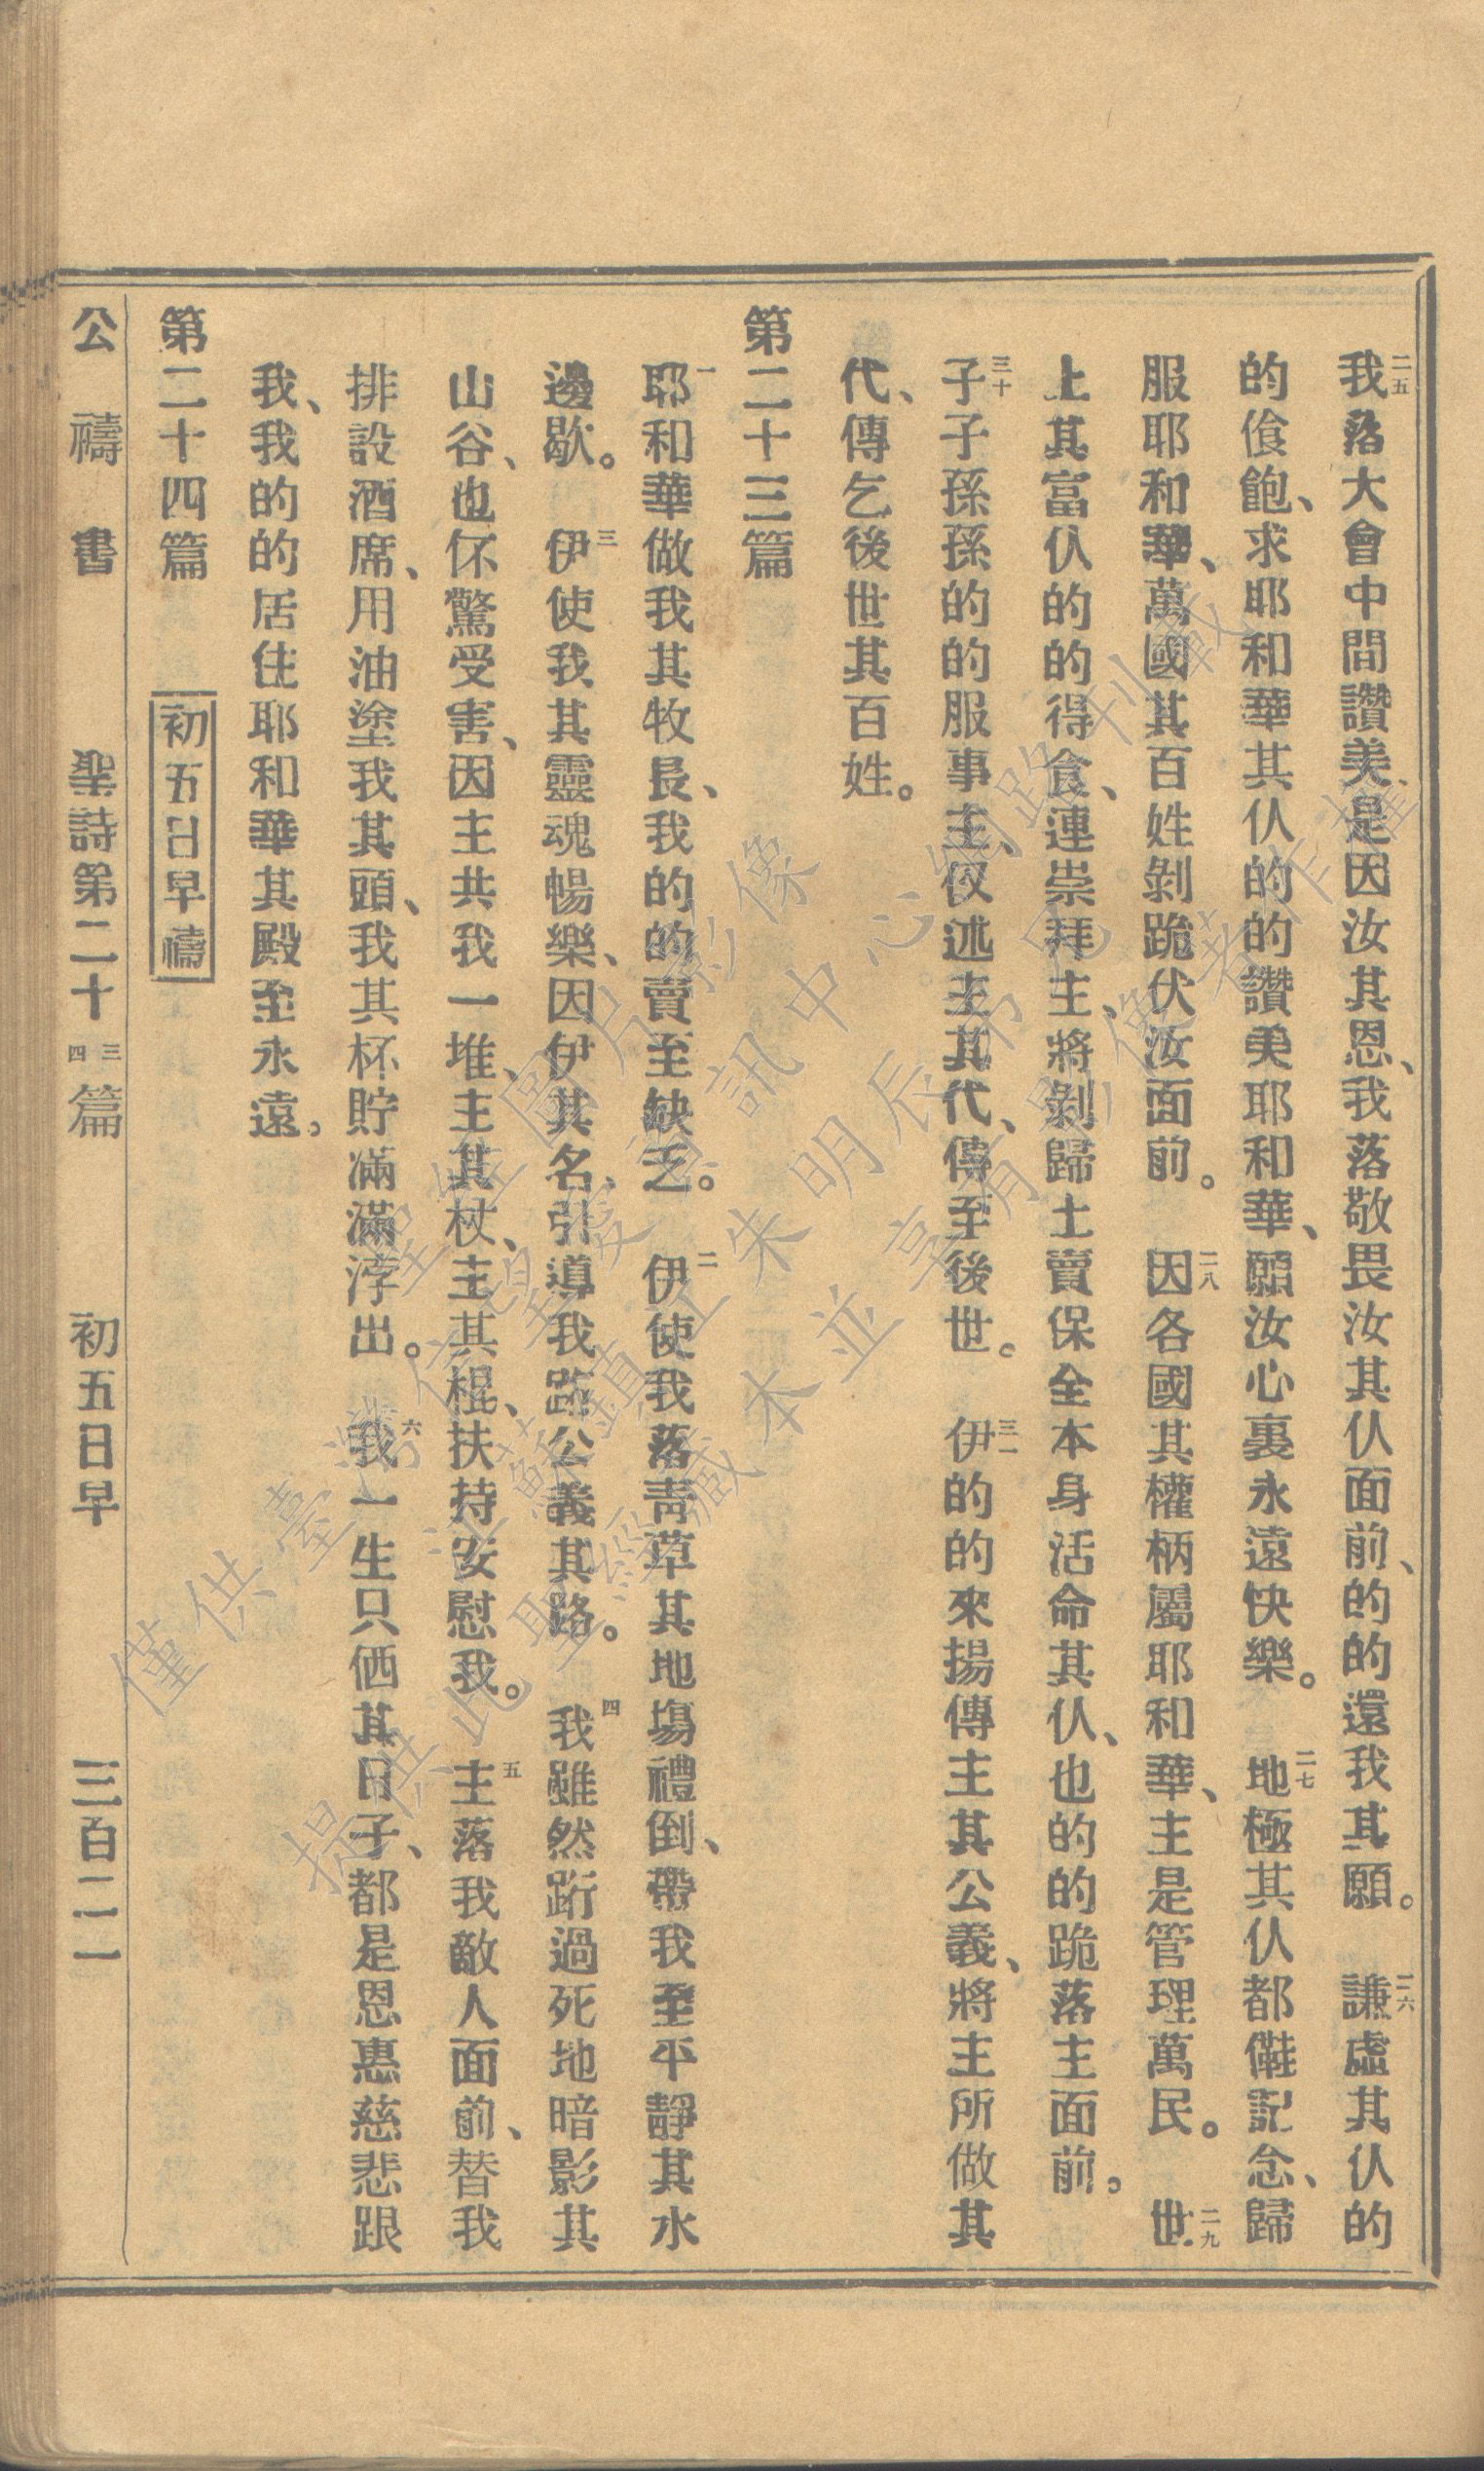 二五我落大會中間讚美、是因汝其恩、我落敬畏汝其仈面前、的的還我其願。二六謙虛其仈的
的飡飽、求耶和華其仈的的讚美耶和華、願汝心裏永遠快樂。二七地極其仈都儺記念、歸
服耶和華、萬國其百姓剝跪伏汝面前。二八因各國其權柄屬耶和華、主是管理萬民。二九世
上其富仈的的得食、連崇拜主、將剝歸土賣保全本身活命其仈、也的的跪落主面前。
三十子子孫孫的的服事主、仅述主其代、傳至後世。三一伊的的來揚傳主其公義、將主所做其
代、傳乞後世其百姓。
第二十三篇
一耶和華做我其牧長、我的的賣至缺乏。二伊使我落靑草其地塲禮倒、帶我至平靜其水
邊歇。三伊使我其靈魂暢樂、因伊其名、引導我跕公義其路。四我雖然跕過死地暗影其
山谷、也伓驚受害、因主共我一堆、主其杖、主其棍、扶持安慰我。五主落我敵人面前、替我
排設酒席、用油塗我其頭、我其杯貯滿滿浡出。六我一生只価其日子、都是恩惠慈悲跟
我、我的的居住耶和華其殿至永遠。
第二十四篇 初五日早禱
公禱書 聖詩第二十三四篇 初五日早 三百二一
僅供臺灣信望愛資訊中心網路刊載
提供此聖經藏本並享有影像著作權